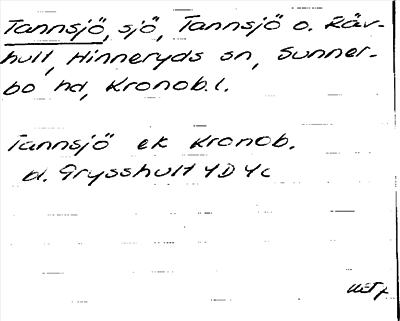 Tannsjö, sjö, Tannsjö o. Räv-
hult, Hinneryds sn, Sunner-
bo hd, Kronob.l.
Tannsjö ek Kronob.
d. Grysshult 4D4c